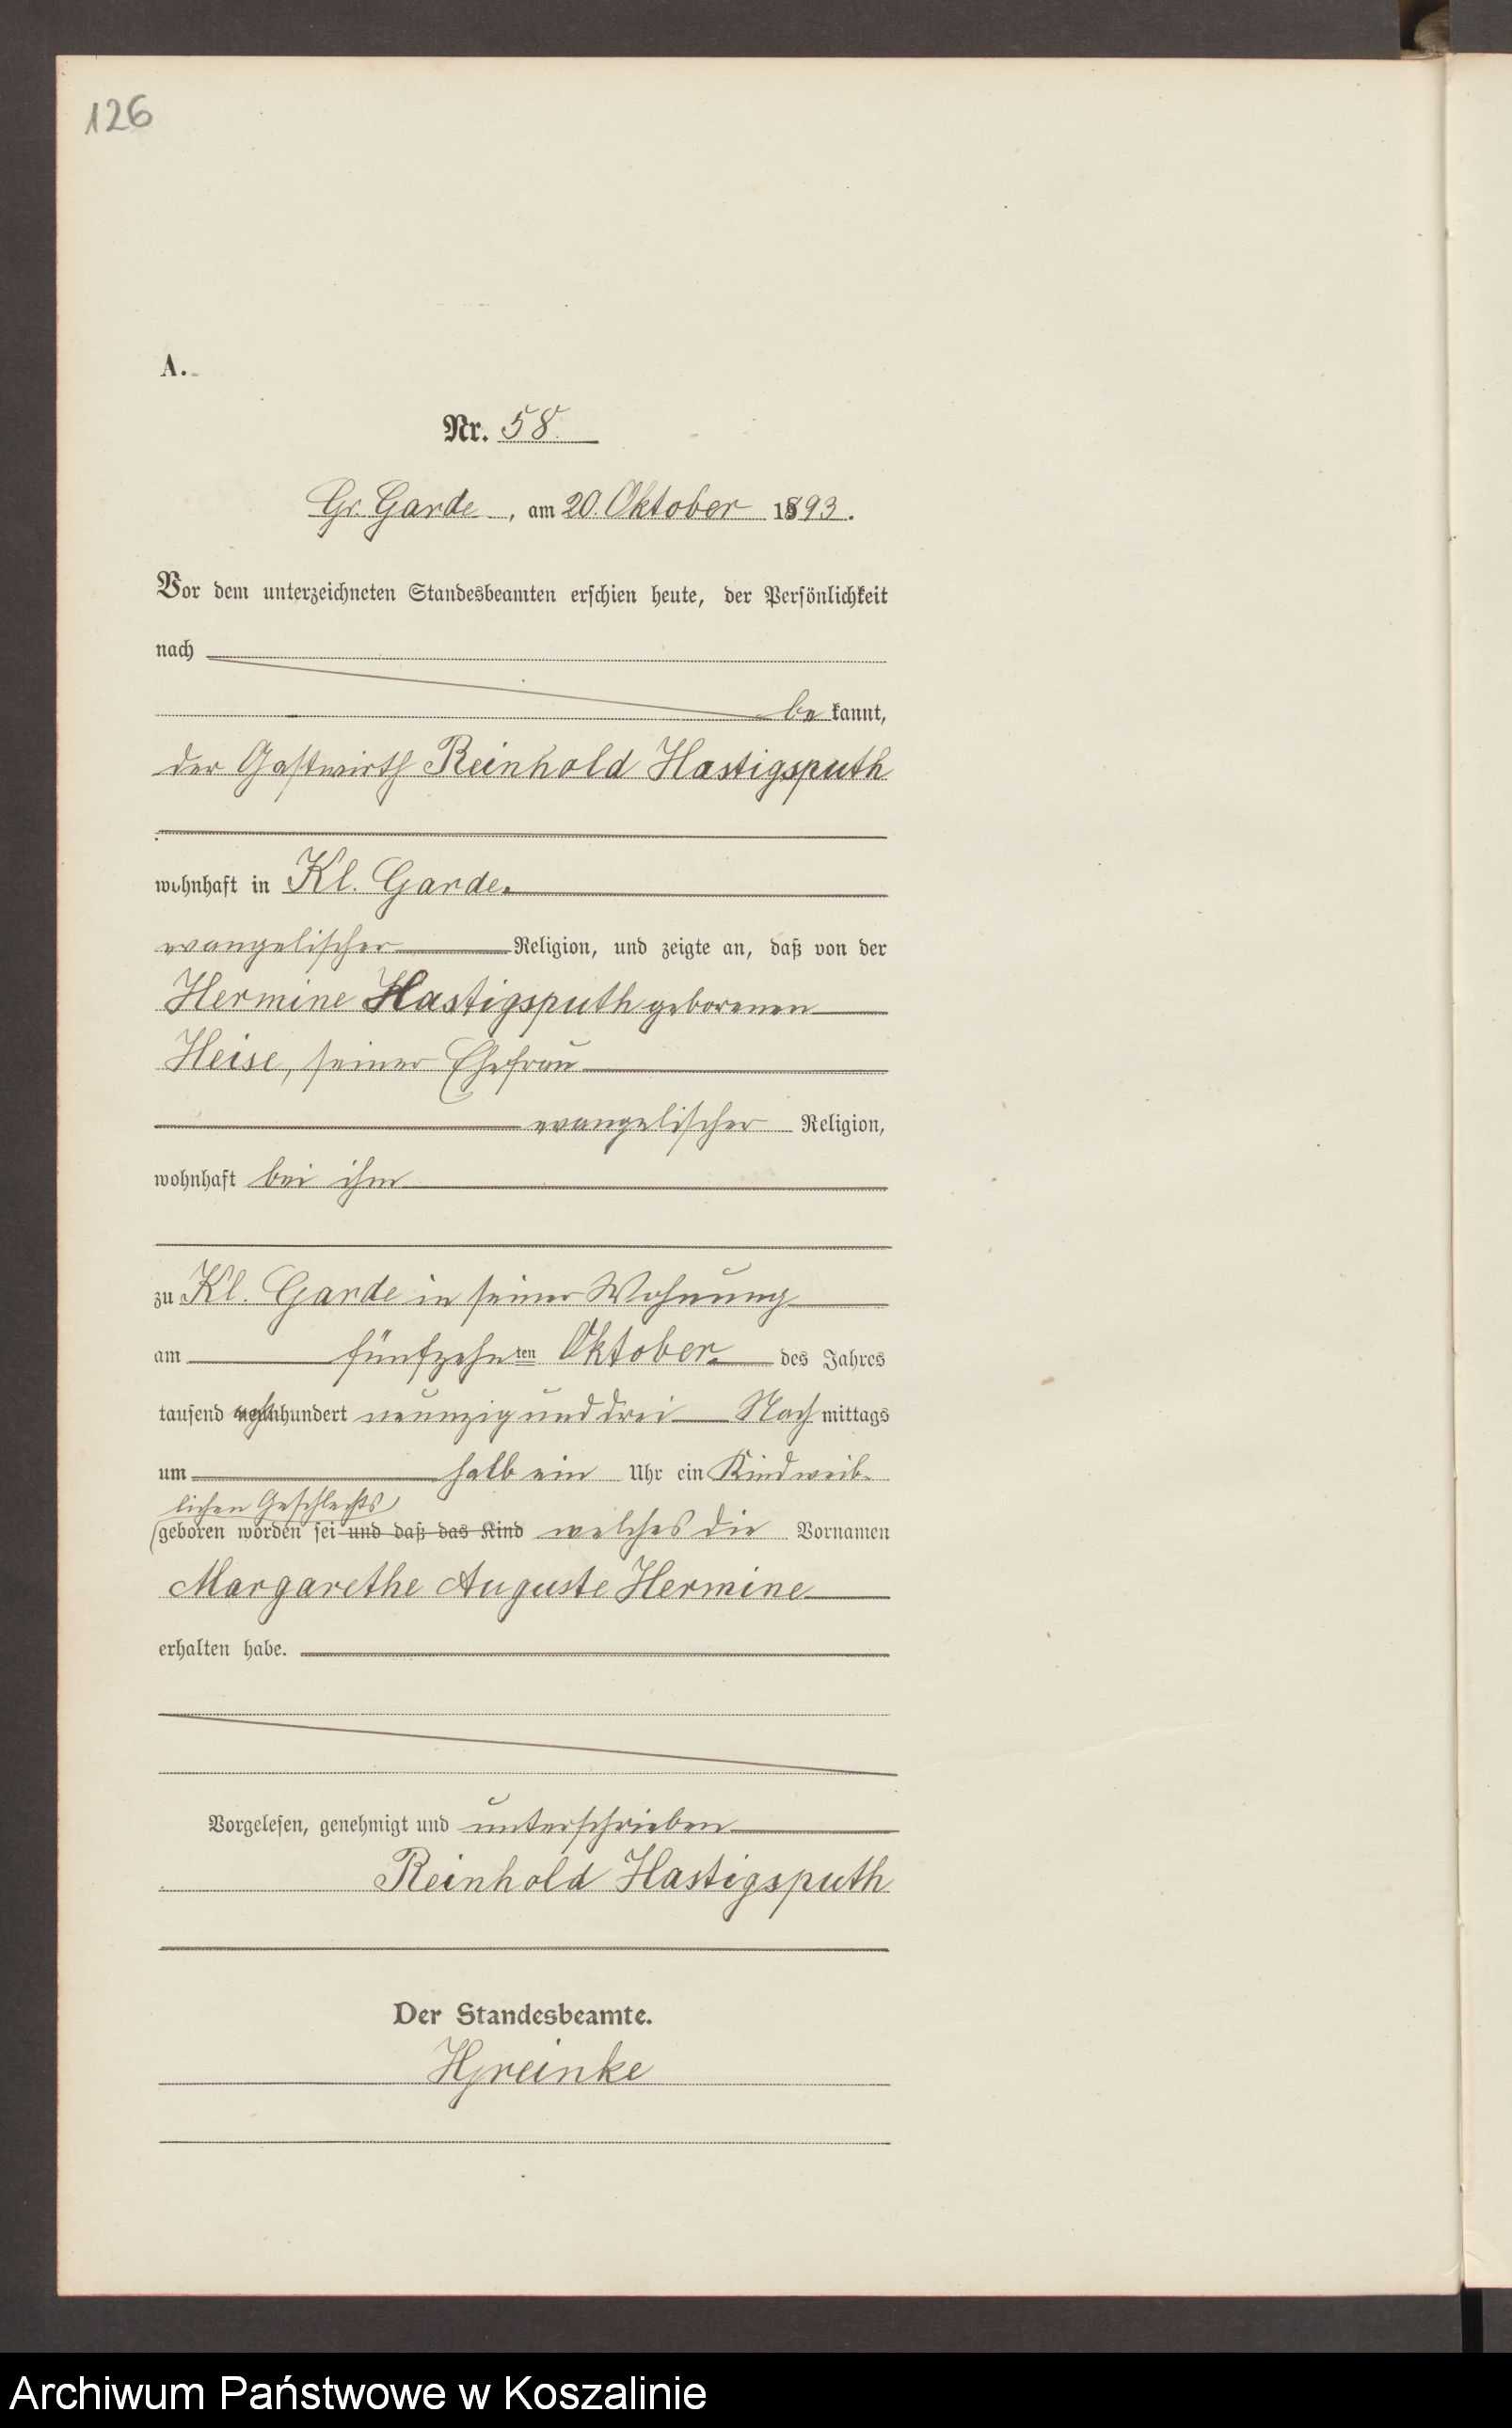 126
A.
Nr. 58
Gr. Garde, am 20. Oktober 1893.
Vor dem unterzeichneten Standesbeamten erschien heute, der Persönlichkeit
nach
be kannt,
der Gastwirth Reinhold Hastigsputh
wohnhaft in Kl. Garde.
evangelischer Religion, und zeigte an, daß von der
Hermine Hastigsputh geborenen
Heise, seiner Ehefrau
evangelischer Religion,
wohnhaft bei ihm
zu Kl. Garde in seiner Wohnung
am fünfzehnten Oktober. des Jahres
tausend achthundert neunzig und drei Nach mittags
um halb ein Uhr ein Kind weib-
lichen Geschlechts
geboren worden sei und daß das Kind welches die Vornamen
Margarethe Auguste Hermine
erhalten habe.
Vorgelesen, genehmigt und unterschrieben
Reinhold Hastigsputh
Der Standesbeamte.
HGreinke
Archiwum Państwowe w Koszalinie